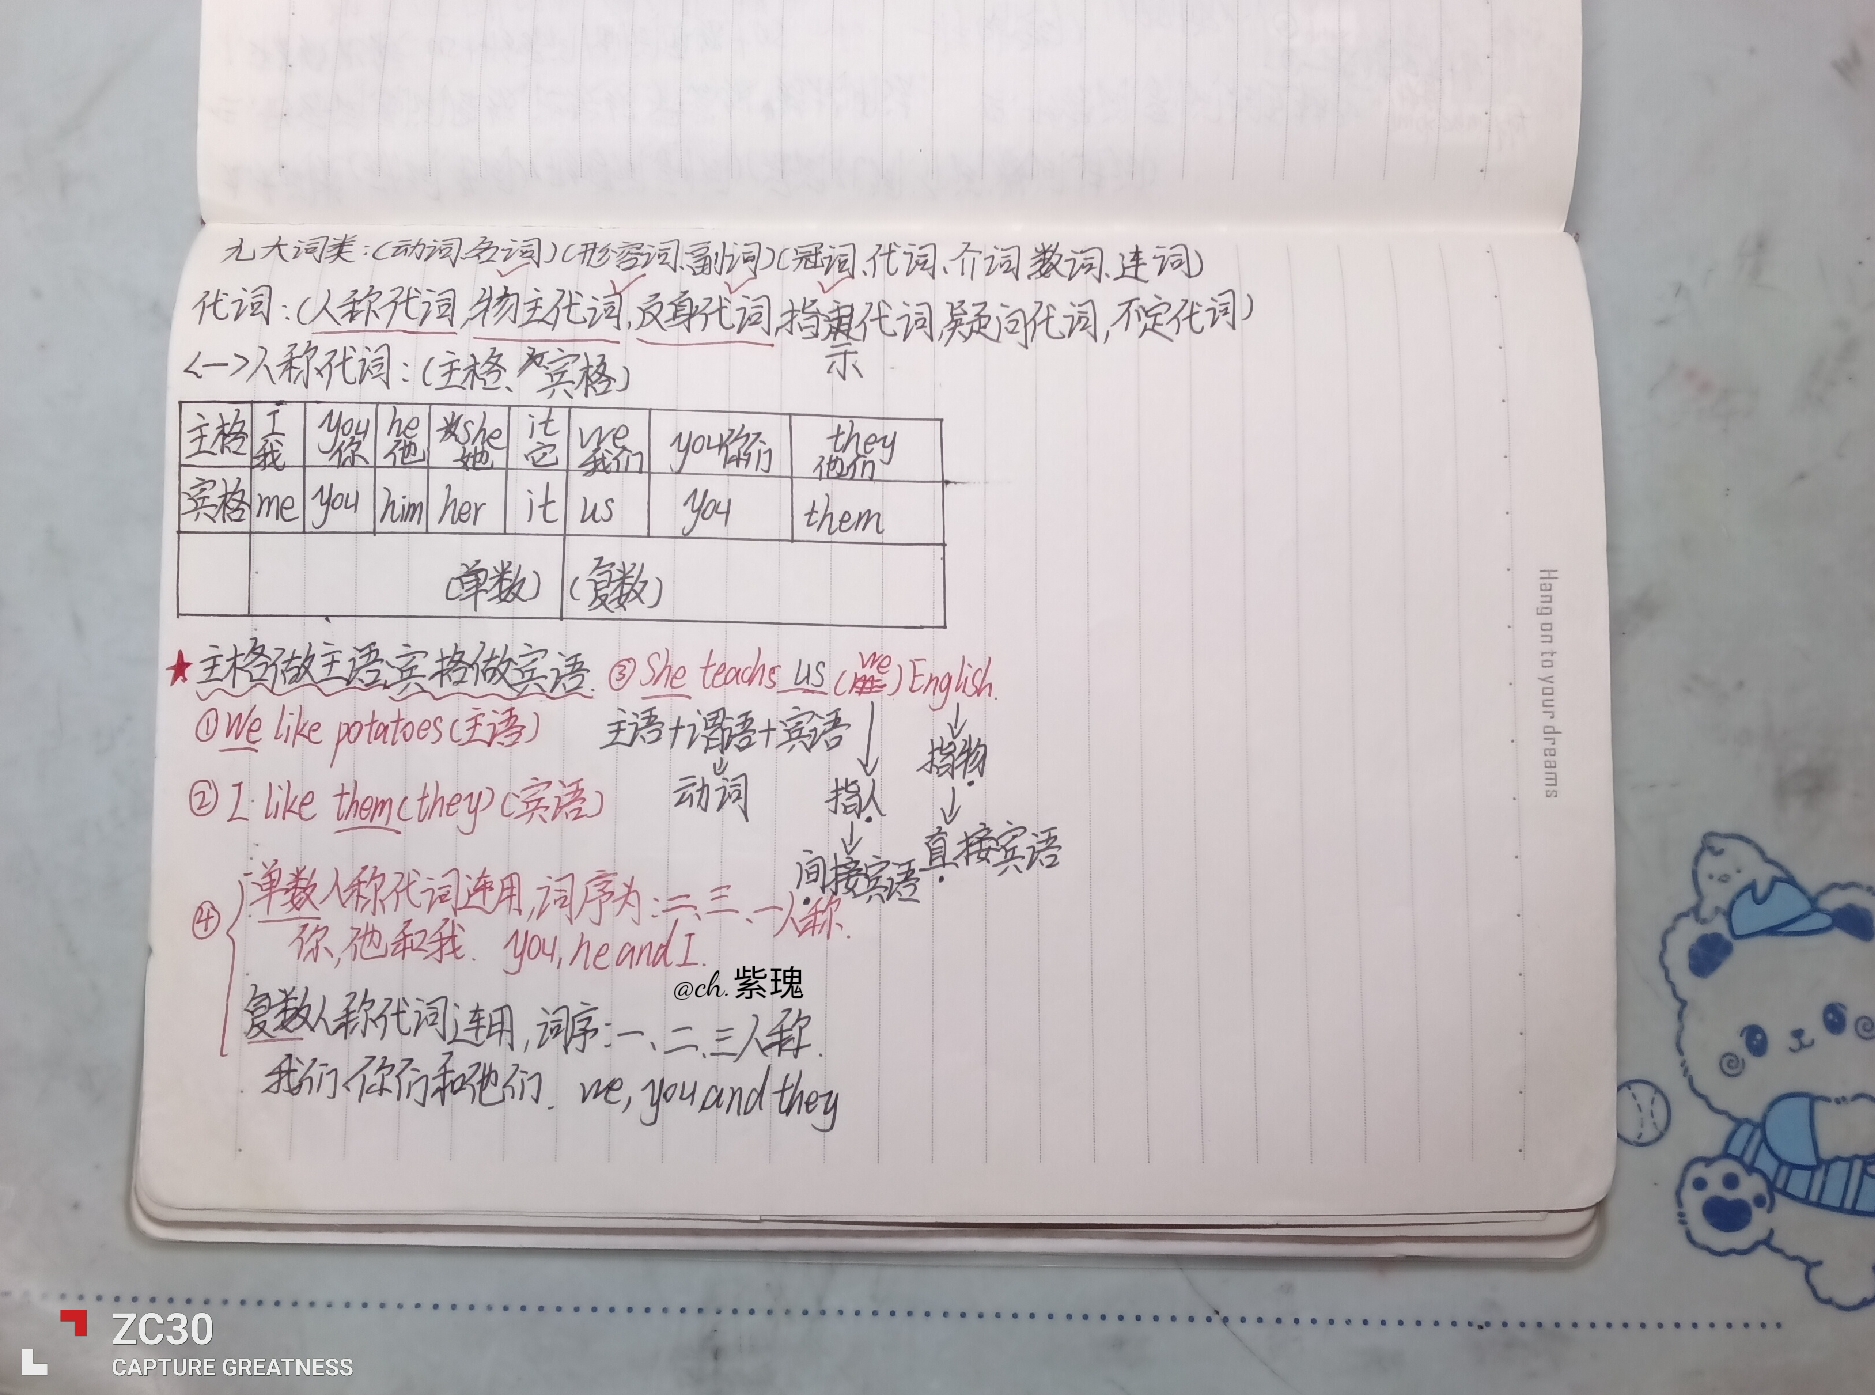 九大词类:(动词、名词)(形容词、副词)(冠词、代词、介词、数词、连词)
代词:(人称代词,物主代词,反身代词,指示代词,疑问代词,不定代词)
<一>人称代词:(主格、宾格)
主格 I 我 you 你 he 他 she 她 it 它 we 我们 you你们 they 他们
宾格 me you him her it us you them
(单数) (复数)
★主格做主语,宾格做宾语. ③She teachs us (we) English.
①We like potatoes(主语) 主语+谓语+宾语 指物
②I like them(they)(宾语) 动词 指人
间接宾语 直接宾语
④ 单数人称代词连用,词序为:二、三、一人称.
你,他和我. you, he and I.
@ch.紫瑰
复数人称代词连用,词序:一、二、三人称.
我们、你们和他们. we, you and they
Hang on to your dreams
ZC30
CAPTURE GREATNESS